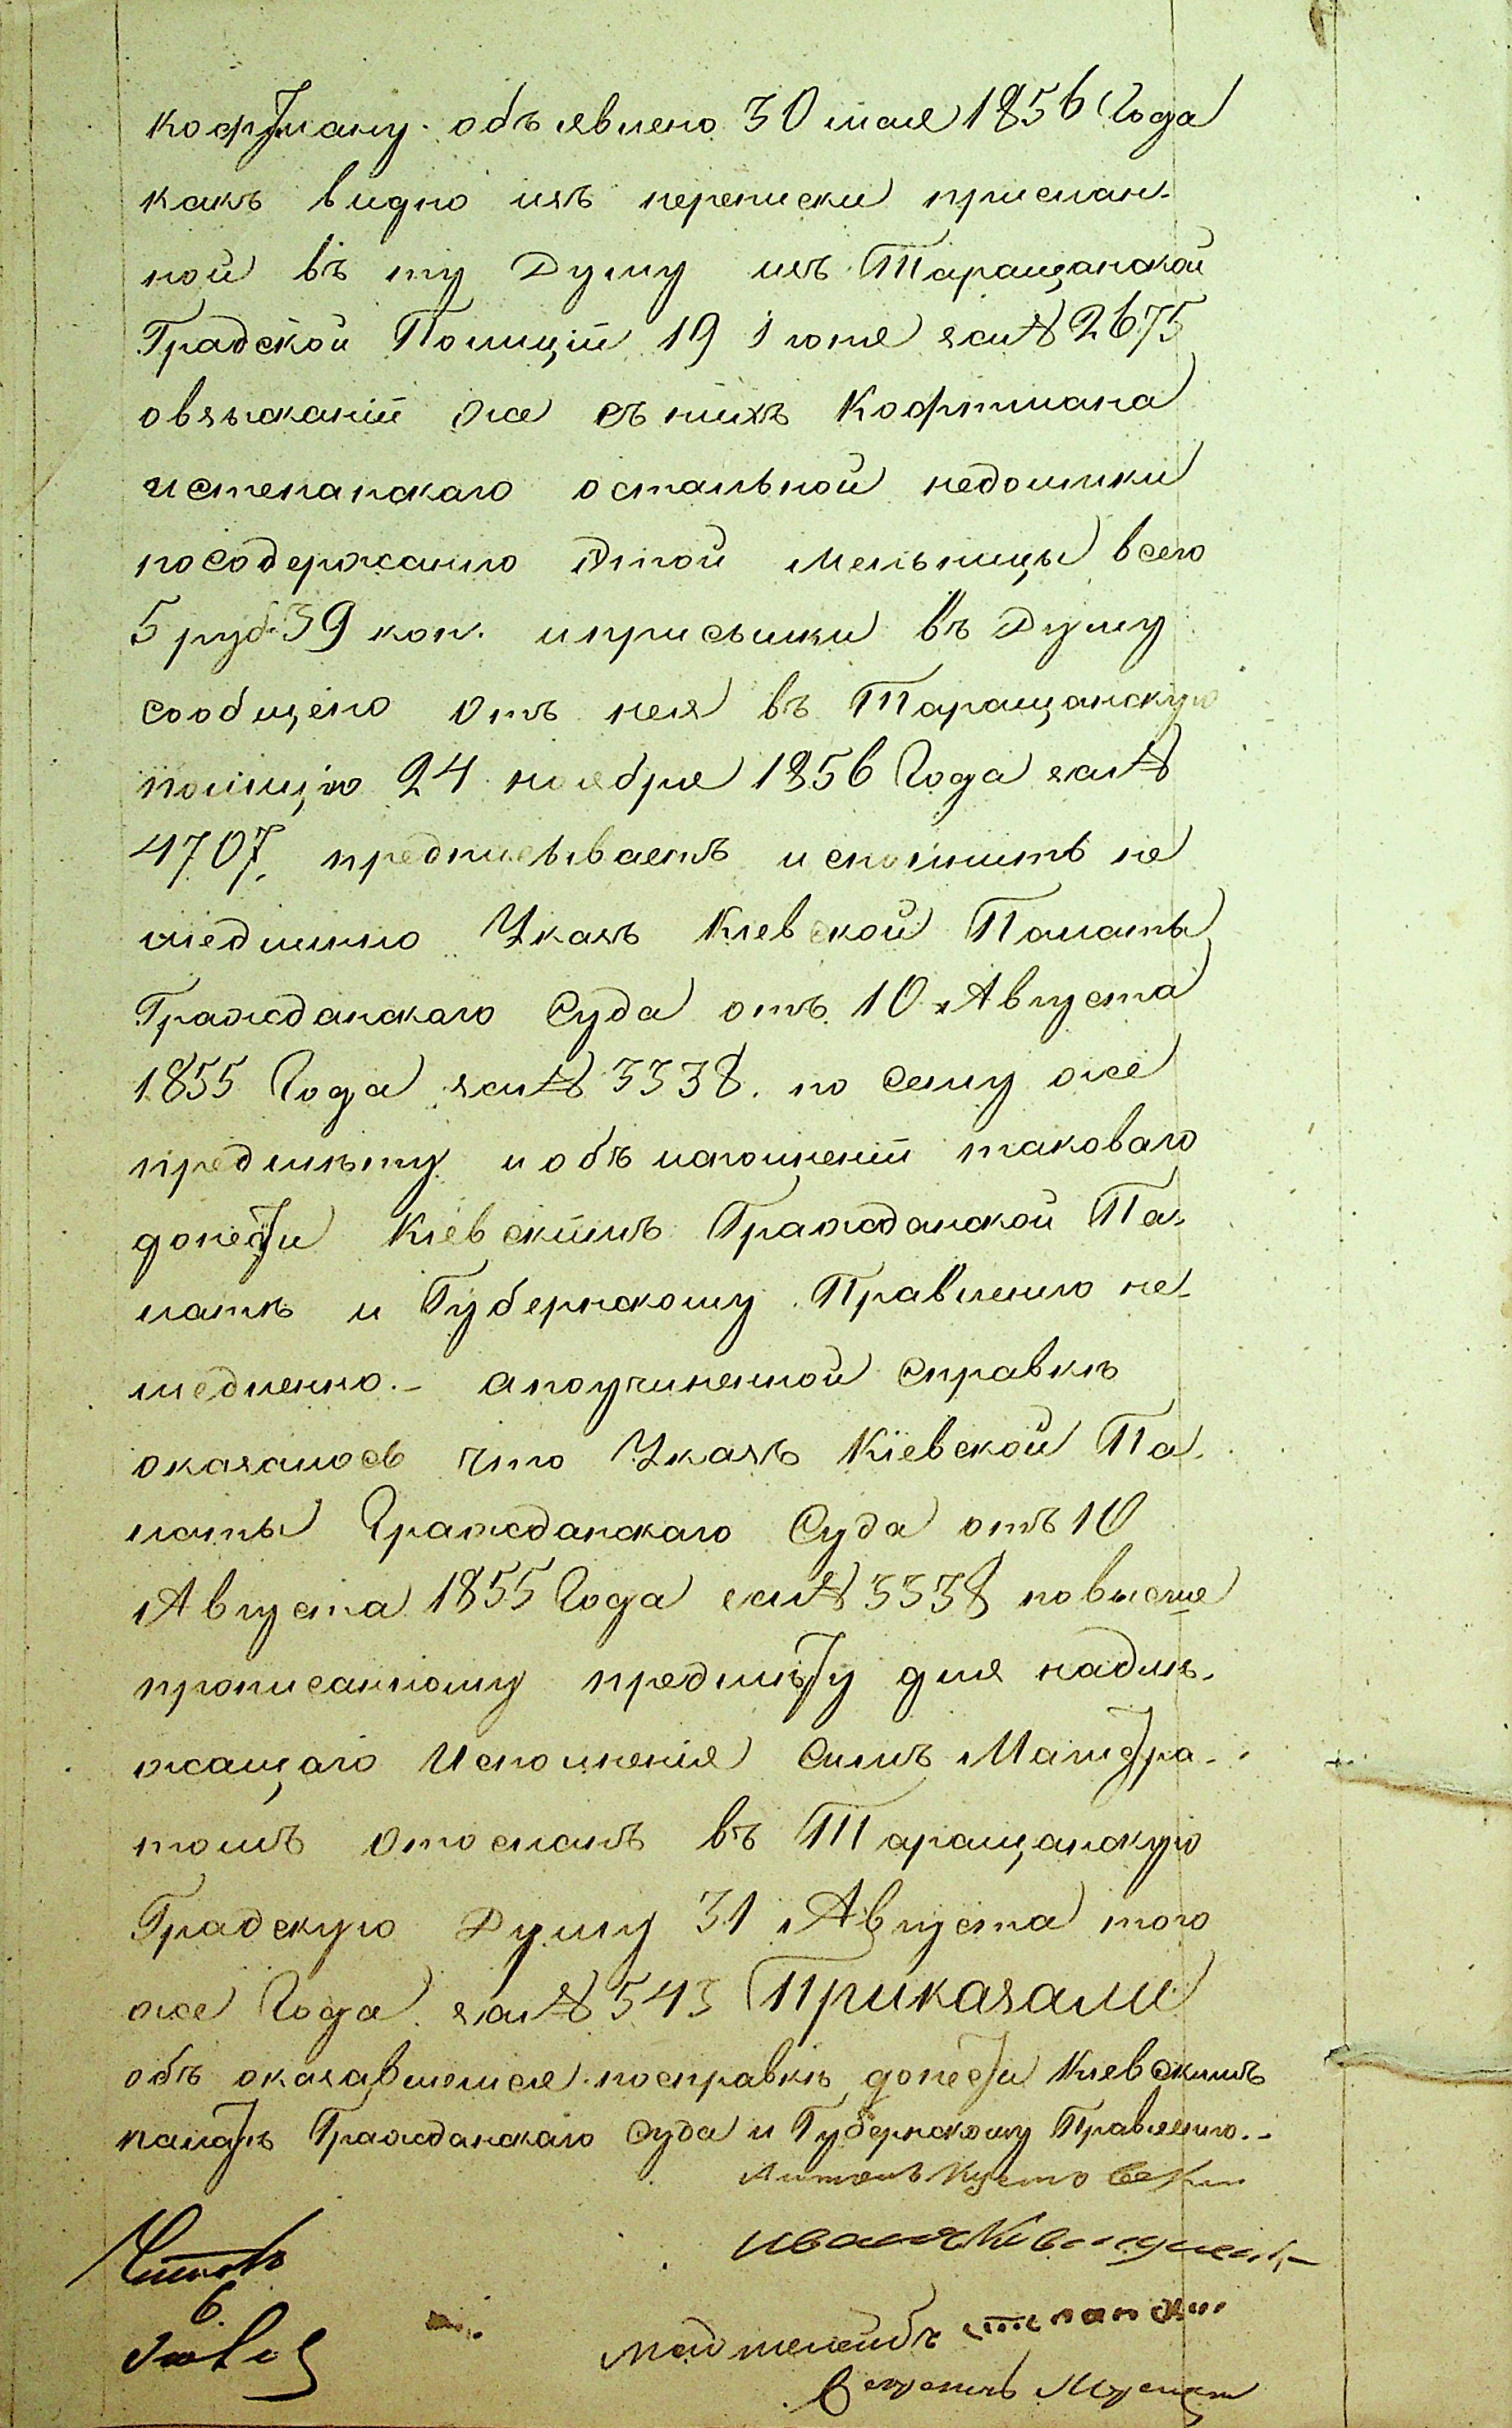 Кофтману объявлено 30 мая 1856 Года
какъ видно изъ переписки прислан-
ной въ ту Думу изъ Таращанской
Градской Полиціи 19 Іюня за № 2675
овзысканіи же съ нихъ Кофтмана
истепанскаго остальной недоимки
посодержанію этой мельницы всего
5 руб 39 коп. иприсылки въ Думу
сообщено отъ нея въ Таращанскую
полицію 24 ноября 1856 Года за №
4707, предписываетъ исполнить не
медлинно Указъ Кіевской Палаты
Гражданскаго Суда отъ 10 Августа
1855 Года за № 3338. по сему же
предмѣту иобъ исполненіи таковаго
донести Кіевскимъ Гражданской Па-
латѣ и Губернскому Правленію не-
медленно.- апоучиненной справкѣ
оказалось что Указъ Кіевской Па-
латы Гражданскаго Суда отъ 10
Августа 1855 Года за № 3338 повыше
прописанному предмѣту для надлѣ-
жащаго Исполненія симъ Магистра-
томъ отосланъ въ Таращанскую
Градскую Думу 31 Августа того
же Года за № 543 Приказали
объ оказавшемся посправкѣ донести Кіевскимъ
палатѣ Гражданскаго Суда и Губернскому Правленію.-
Иванъ
6.